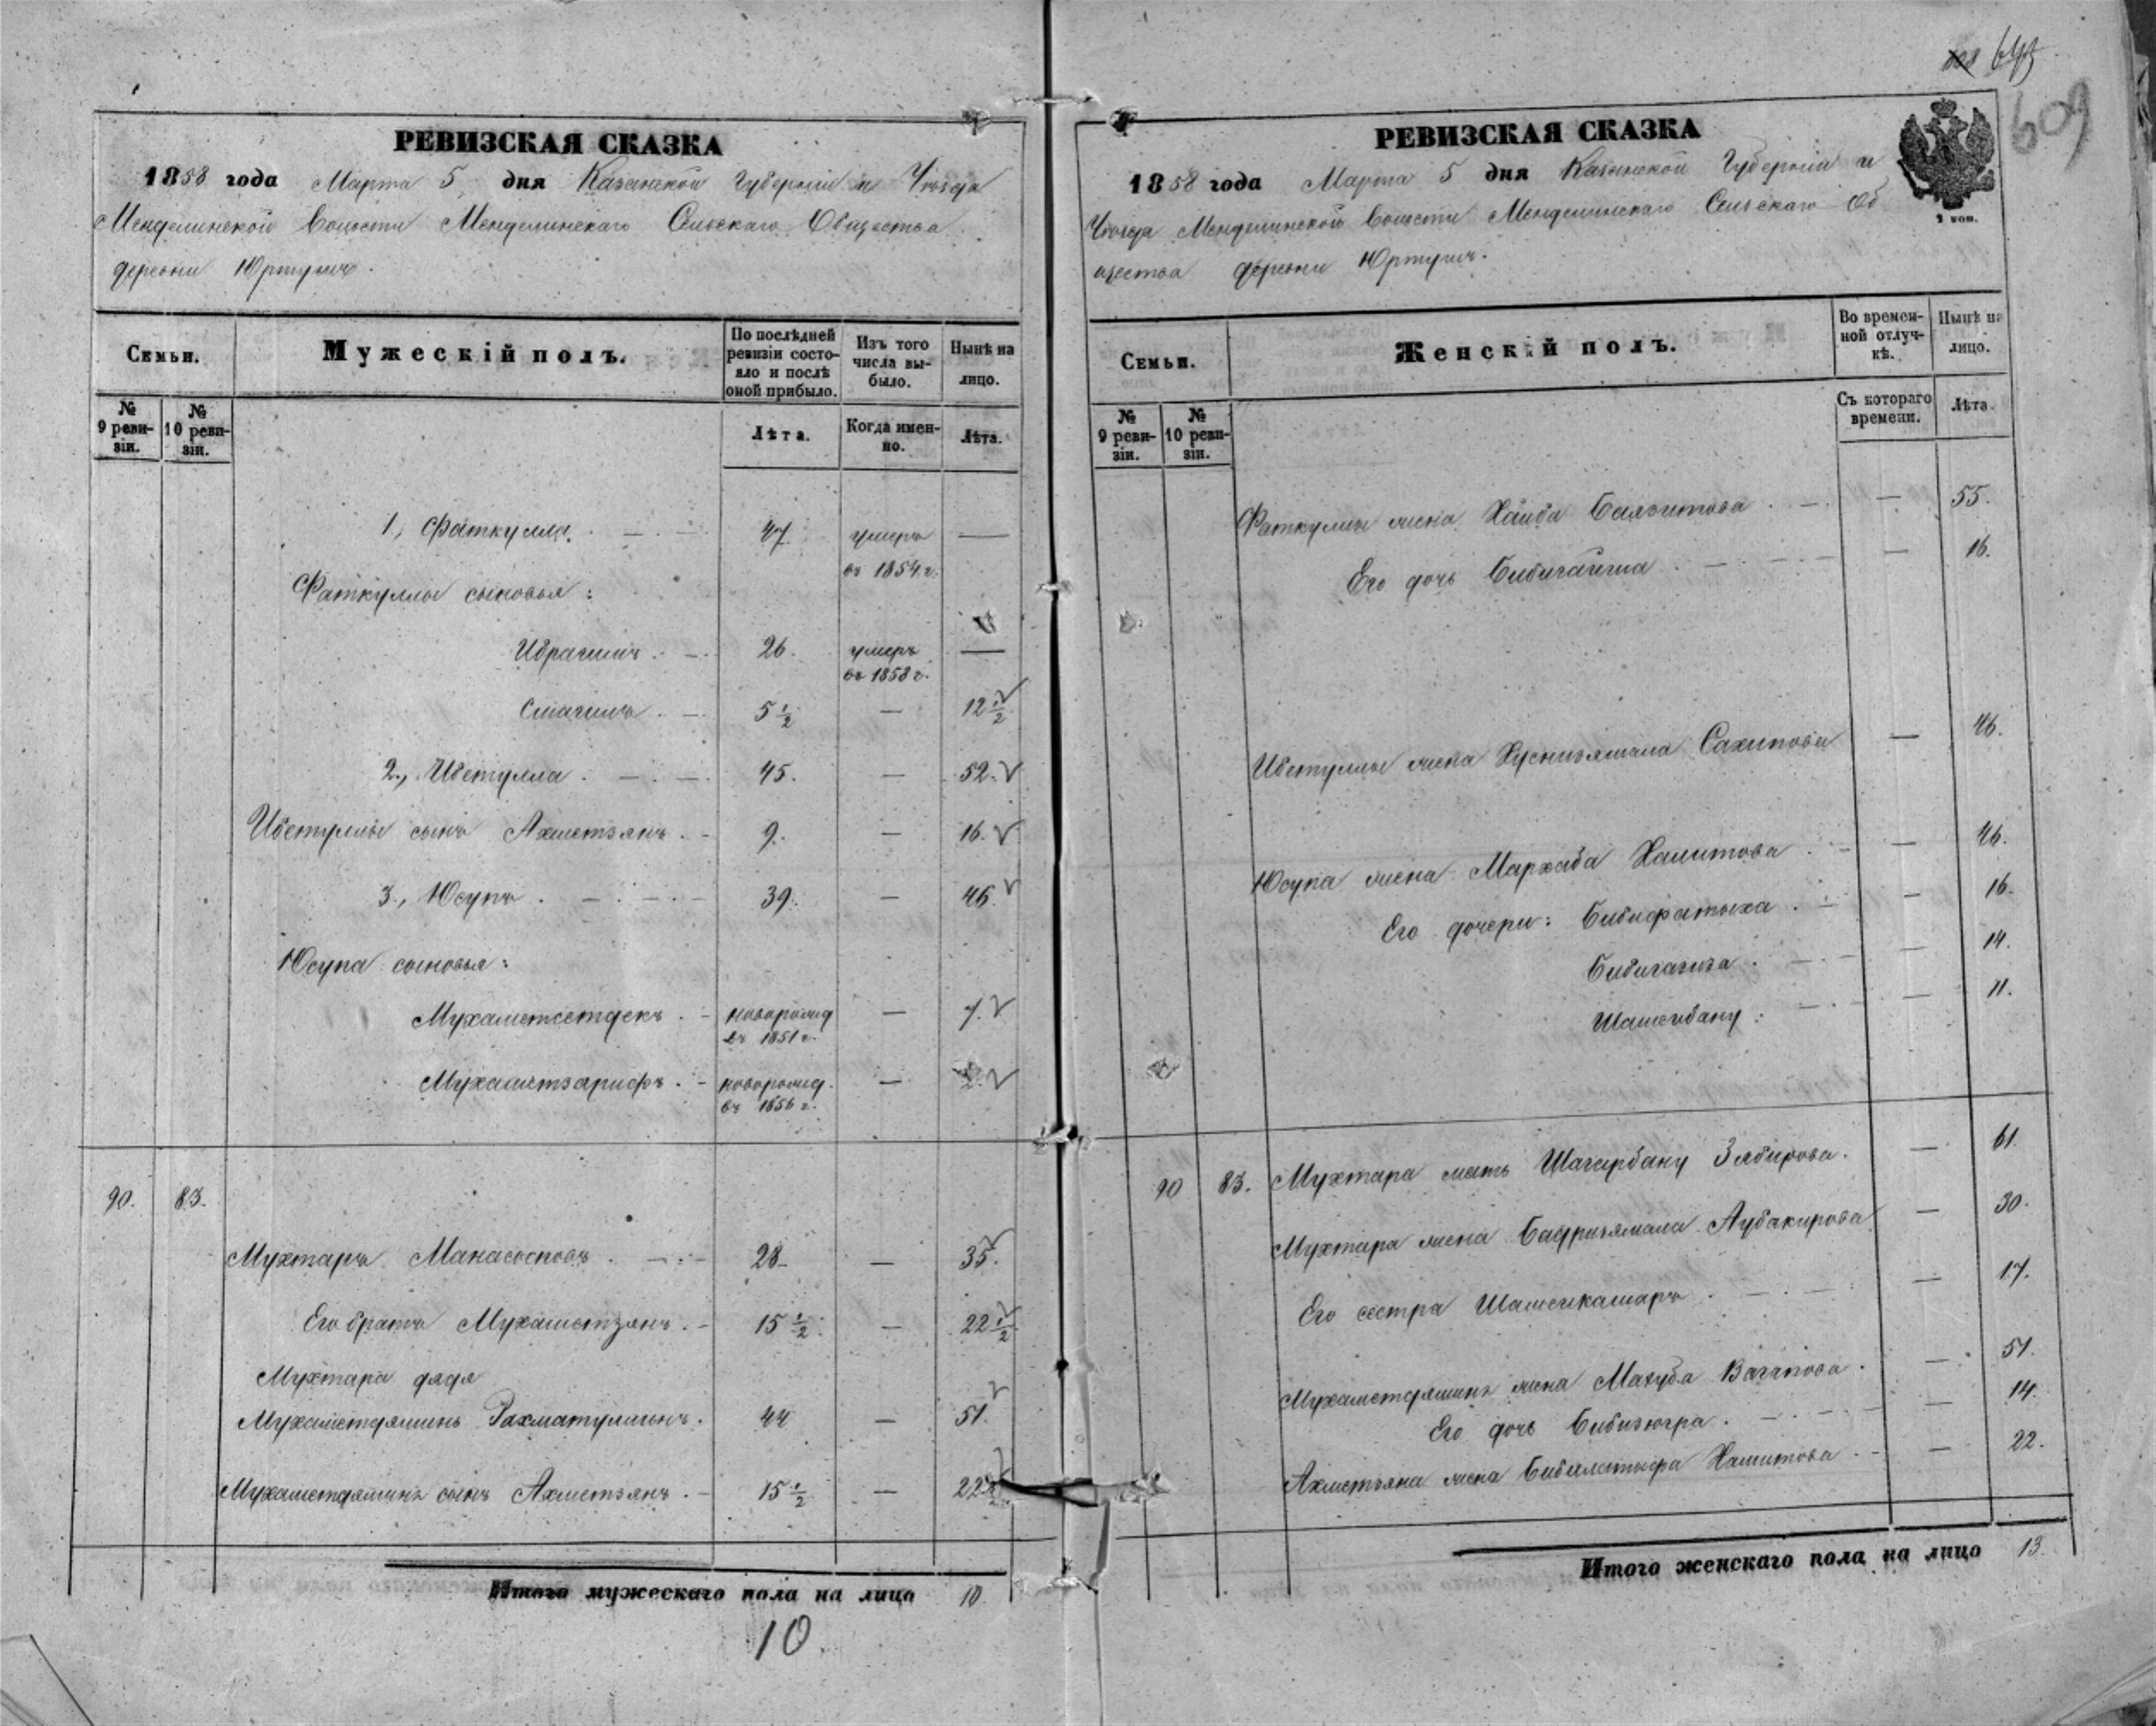 609
РЕВИЗСКАЯ СКАЗКА
1858 года Марта 5 дня Казанской Губерніи и Уѣзда
Менделинской Волости Менделинскаго Сельскаго Общества
деревни Юртушъ.
Семьи.
Мужескій полъ.
По послѣдней ревизіи состояло и послѣ оной прибыло.
Изъ того числа выбыло.
Нынѣ на лицо.
№ 9 ревизіи.
№ 10 ревизіи.
Лѣта.
Когда именно.
Лѣта.
1, Фаткулла 47 умеръ въ 1854 г. —
Фаткуллы сыновья:
Ибрагимъ 26. умеръ въ 1858 г. —
Смагилъ 5 1/2 — 12 1/2
2., Ибетулла 45. — 52.
Ибетуллы сынъ Ахметзянъ 9. — 16.
3., Юсупъ 39. — 46
Юсупа сыновья:
Мухаметсетдекъ новорожд въ 1851 г. — 7.
Мухаметзарифъ новорожд. въ 1856 г. — 2.
90. 83.
Мухтаръ 28 — 35.
Его братъ Мухаметзянъ 15 1/2 — 22 1/2
Мухтара дядя
Мухаметдяминъ Рахматуллинъ. 44 — 51.
Мухаметдямина сынъ Ахметзянъ 15 1/2 — 22 1/2
Итого мужескаго пола на лицо 10.
10.
РЕВИЗСКАЯ СКАЗКА
1858 года Марта 5 дня Казанской Губерніи и
Уѣзда Менделинской Волости Менделинскаго Сельскаго Об
щества деревни Юртушъ.
2 коп.
Семьи.
Женскій полъ.
Во временной отлучкѣ.
Нынѣ на лицо.
№ 9 ревизіи.
№ 10 ревизіи.
Съ котораго времени.
Лѣта.
Фаткуллы жена Хаиба Баязитова — 55.
Его дочь Бибигайша — 16.
Ибетуллы жена Хуснизямала Сахипова — 46.
Юсупа жена Мархаба Халитова — 46.
Его дочери: Бибифатыха — 16.
Бибигазиза — 14.
Шамсибану — 11.
90 83. Мухтара мать Шагирбану Зябирова. — 61.
Мухтара жена Бадризямала Аубакирова — 30.
Его сестра Шамсикамаръ — 17.
Мухаметдямина жена Махуба Вагапова — 51.
Его дочь Бибизюгра — 14.
Ахметзяна жена Хамитова — 22.
Итого женскаго пола на лицо 13